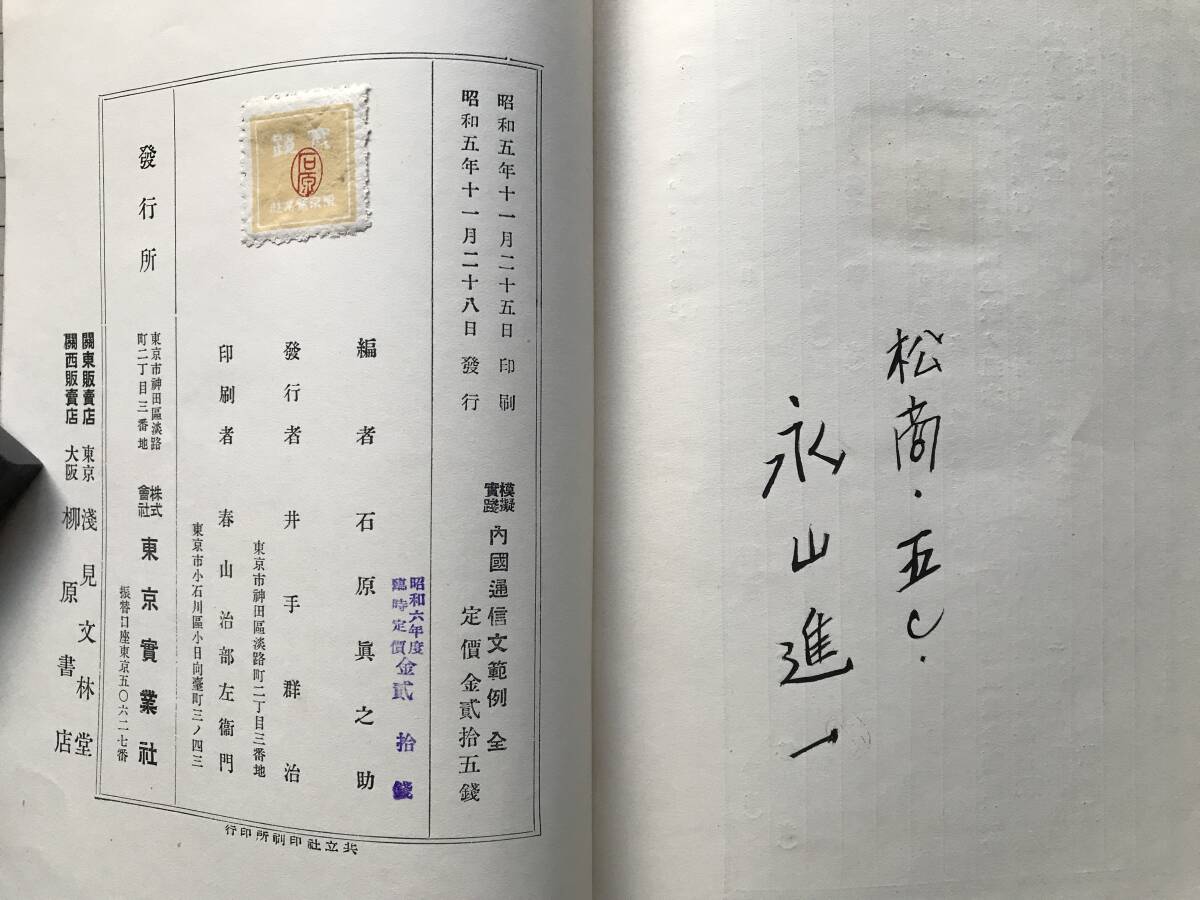 松商.五C.
永山進一
昭和五年十一月二十五日 印刷
昭和五年十一月二十八日 發行
模擬實踐 內國通信文範例 全
定價金貳拾五錢
昭和六年度
臨時定價 金貳拾錢
編者 石原眞之助
東京市神田區淡路町二丁目三番地
發行者 井手群治
東京市小石川區小日向臺町三ノ四三
印刷者 春山治部左衞門
石原
發行所
東京市神田區淡路町二丁目三番地
株式會社 東京實業社
振替口座東京五〇六二七番
關東販賣店 東京 淺見文林堂
關西販賣店 大阪 柳原書店
共立社印刷所印行